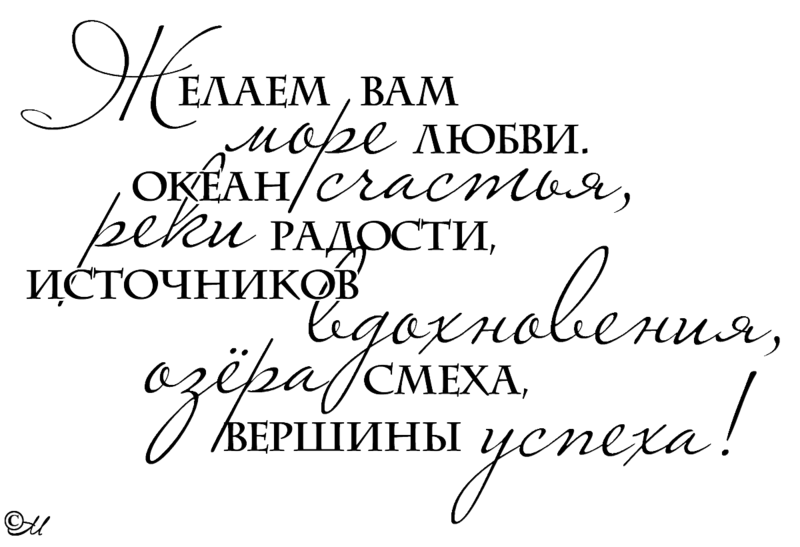 Желаем вам
море любви.
океан счастья,
реки радости,
источников
вдохновения,
озёра смеха,
вершины успеха!
©М